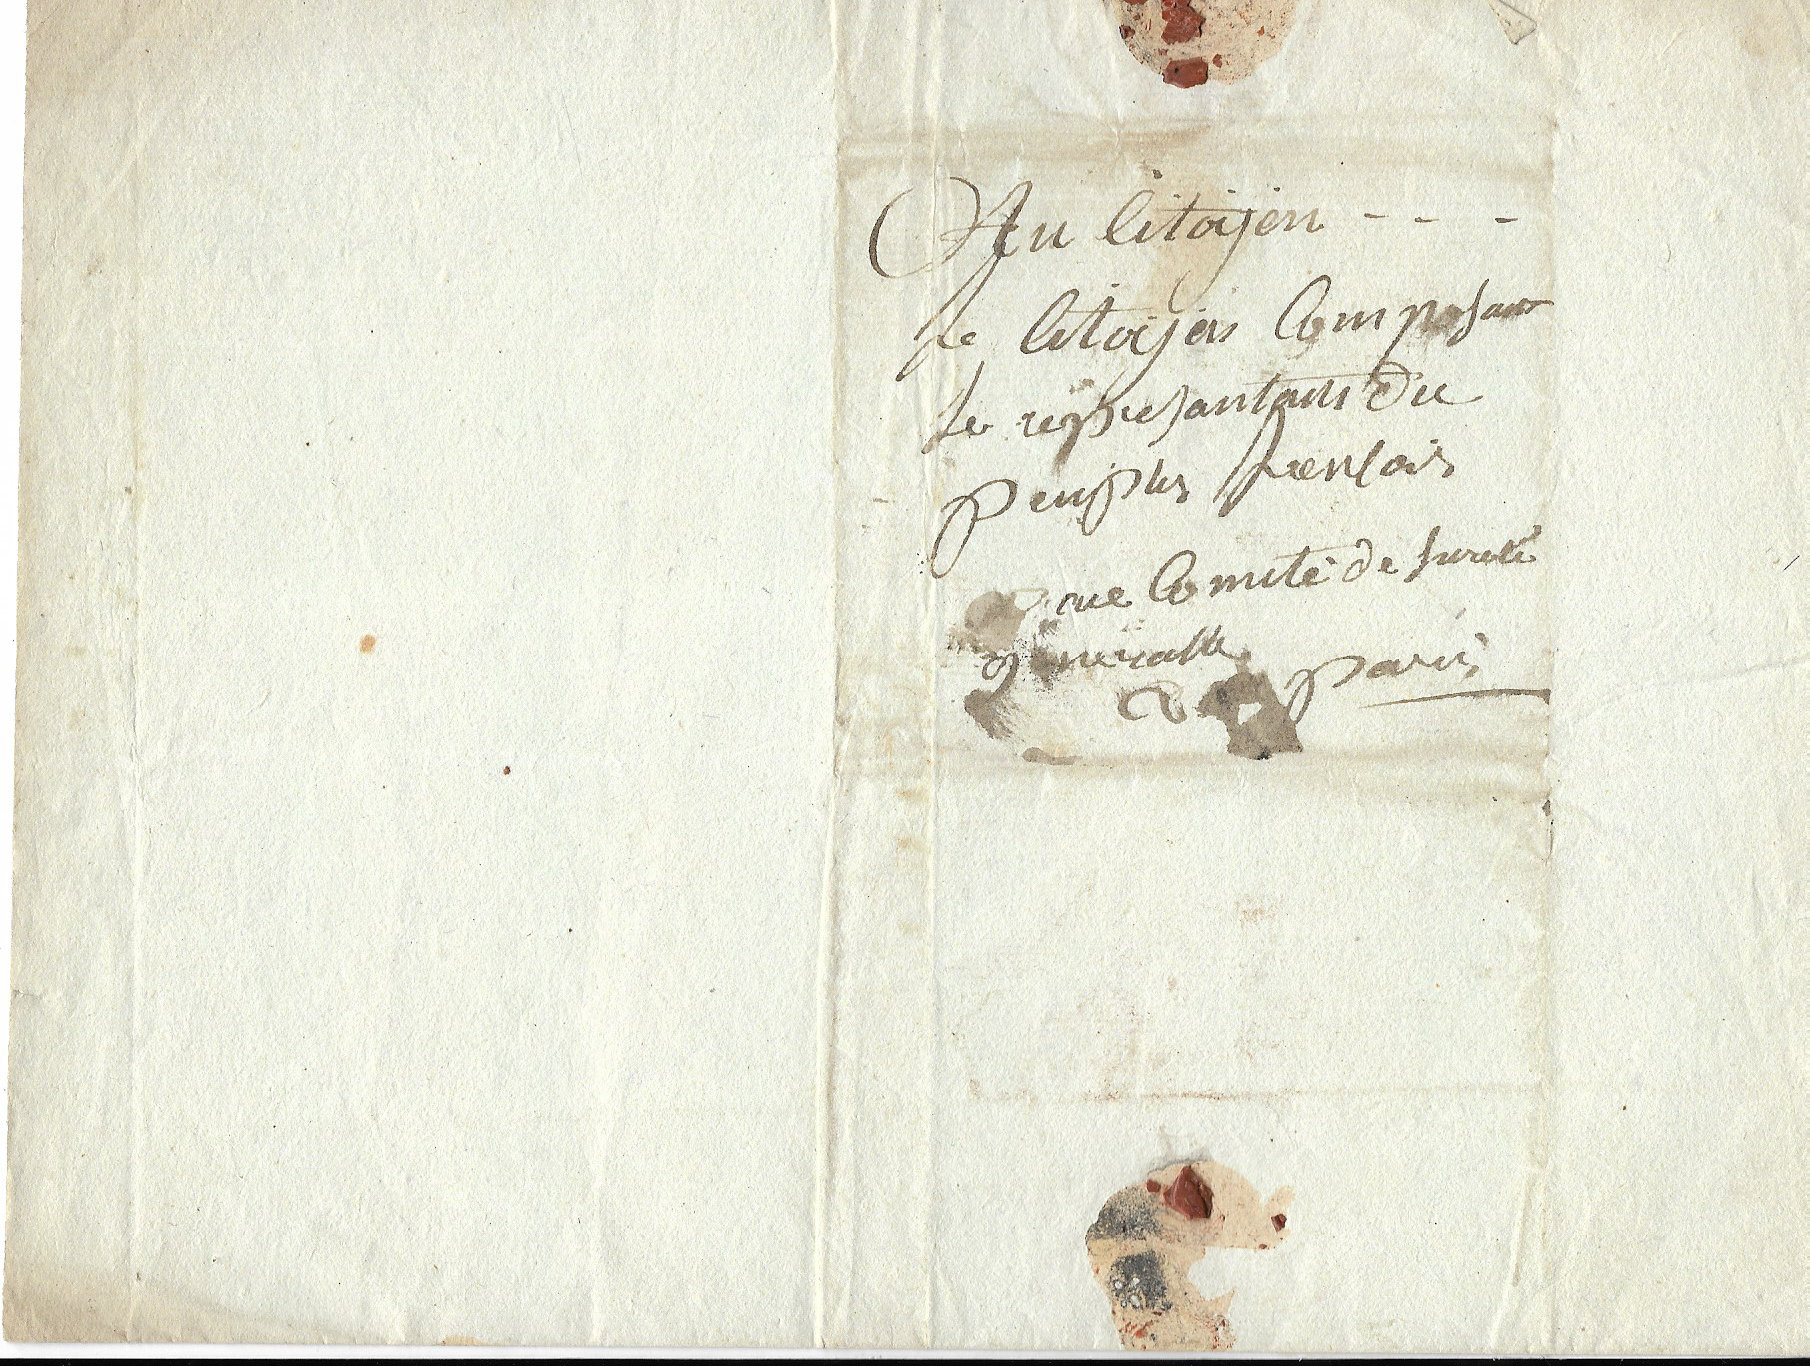 Au Citoyen - - -
le Citoyen Composant
le represantans du
peuples francais
aue Comité de Sureté
generalle
de paris